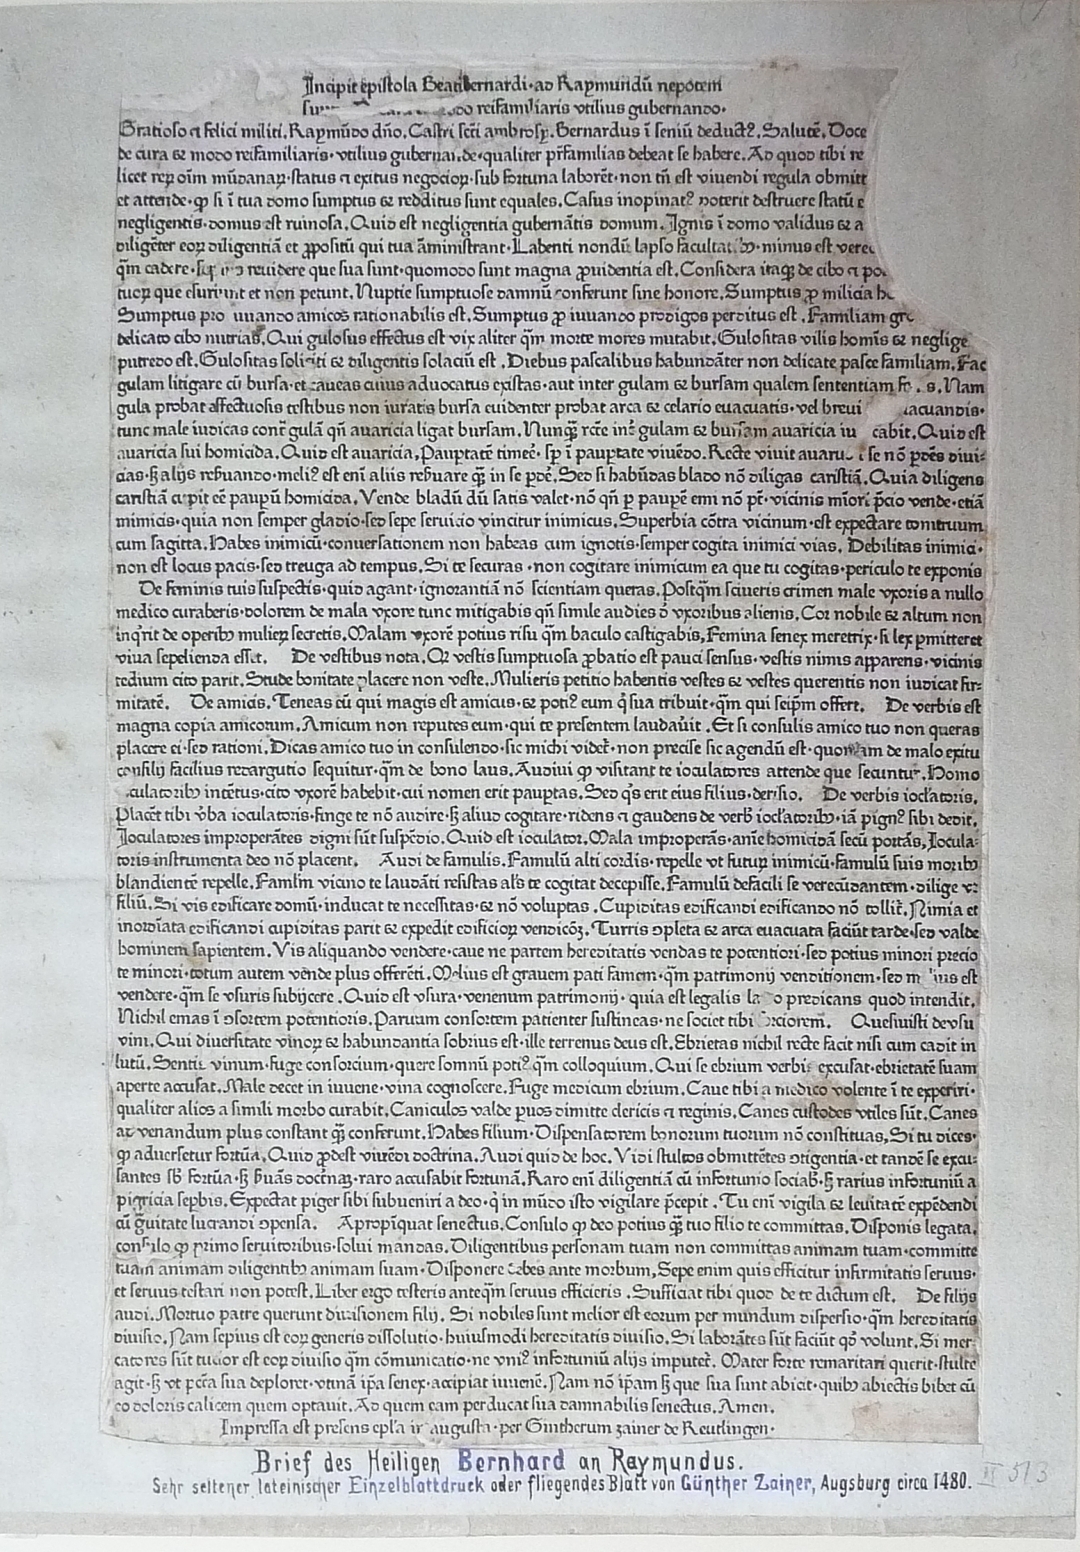 Incipit epistola Beati Bernardi·ad Raymundū nepotem
reifamiliaris vtilius gubernando·
Gratioso ⁊ felici militi.Raymūdo dn̄o.Castri scti ambrosy.Bernardus ī seniū deductꝰ.Salutē.Doce
de cura & modo reifamiliaris·vtilius qualiter pr̄familias debeat se habere.Ad quod tibi re
licet rerꝝ oīm mūdanaꝝ·status ⁊ exitus negocioꝝ·sub fortuna laborēt·non tn̄ est viuendi regula obmitt
et attende·ꝙ si ī tua domo sumptus & redditus sunt equales.Casus inopinatꝰ poterit destruere statū
negligentis·domus est ruinosa.Quid est negligentia gubernātis domum.Ignis ī domo validus & a
diligēter eoꝝ diligentiā et ꝓpositū qui tua āministrant·Labenti nondū lapso minus est
qm̄ cadere· reuidere que sua sunt·quomodo sunt magna ꝓuidentia est.Considera itaqꝫ de cibo ⁊
tuoꝝ que et non petunt.Nuptie sumptuose damnū conferunt sine honore.Sumptus ꝓ milicia
Sumptus pro amicos rationabilis est.Sumptus ꝓ iuuando prodigos perditus est.Familiam
delicato cibo nutrias.Qui gulosus effectus est vix aliter qm̄ morte mores mutabit.Gulositas vilis homīs & neglige
putredo est.Gulositas & diligentis solaciū est.Diebus pascalibus habundāter non delicate pasce familiam.Fac
gulam litigare cū bursa·et caueas cuius aduocatus existas·aut inter gulam & bursam qualem sententiam Nam
gula probat affectuosis testibus non iuratis bursa euidenter probat arca & celario euacuatis·vel breui
tunc male iudicas contr̄ gulā qn̄ auaricia ligat bursam.Nunqꝫ rcte int̄ gulam & bursam auaricia Quid est
auaricia sui homicida.Quid est auaricia.Paupertatē timet̄· ī paupertate viuēdo.Recte viuit se nō ꝑdēs diui-
cias·ꝫ alijs reb̄uando·meliꝰ est eni aliis reb̄uare qꝫ in se ꝑdē.Sed si habūdas blado nō diligas caristiā.Quia diligens
caristiā cupit eē paupū homicida.Vende bladū dū satis valet·nō qn̄ ꝑ paupē emi nō pt̄·vicinis mīori p̄cio vende·etiā
inimicis·quia non semper gladio·sed sepe seruicio vincitur inimicus.Superbia cōtra vicinum·est expectare tomtruum
cum sagitta.Habes inimicū·conuersationem non habeas cum ignotis·semper cogita inimici vias.Debilitas inimici·
non est locus pacis·sed treuga ad tempus.Si te securas·non cogitare inimicum ea que tu cogitas·periculo te exponis
De feminis tuis suspectis·quid agant·ignorantiā nō scientiam queras.Postqm̄ sciueris crimen male vxoris a nullo
medico curaberis·dolorem de mala vxore tunc mitigabis qn̄ simile audies ō vxoribus alienis.Cor nobile & altum non
inqrit de operibꝫ mulieꝝ secretis.Malam vxorē potius risu qm̄ baculo castigabis.Femina senex meretrix·si lex ꝑmitteret
viua sepelienda esset. De vestibus nota.Qꝫ vestis sumptuosa ꝓbatio est pauci sensus·vestis nimis apparens·vicinis
tedium cito parit.Stude bonitate placere non veste.Mulieris petitio habentis vestes & vestes querentis non iudicat fir-
mitatē. De amicis.Teneas eū qui magis est amicus·& potiꝰ eum q̇ sua tribuit·qm̄ qui seipm̄ offert. De verbis est
magna copia amicorum.Amicum non reputes eum·qui te presentem laudauit.Et si consulis amico tuo non queras
placere ei·sed rationi.Dicas amico tuo in consulendo·sic michi videt̄·non precise sic agendū est·quoniam de malo exitu
consilij facilius redargutio sequitur·qm̄ de bono laus.Audiui ꝙ visitant te ioculatores attende que secuntur.Homo
ioculatoribꝫ intētus·cito vxorē habebit·cui nomen erit pauptas.Sed qs erit eius filius·derisio. De verbis ioclatoris.
Placēt tibi v̄ba ioculatoris·finge te nō audire·ꝫ aliud cogitare·ridens ⁊ gaudens de verb̄ ioclatoribꝫ·iā pignꝰ sibi dedit.
Ioculatores improperātes digni sūt suspēdio.Quid est ioculator.Mala improperās·anīe homicidā secū portās.Iocula-
toris instrumenta deo nō placent. Audi de famulis.Famulū alti cordis·repelle vt futurꝝ inimicū·famulū suis moribꝫ
blandientē repelle.Famlm̄ vicino te laudāti resistas als te cogitat decepisse.Famulū defacili se verecūdantem·dilige vt
filiū.Si vis edificare domū·inducat te necessitas·& nō voluptas.Cupiditas edificandi edificando nō tollit̄.Nimia et
inordiata edificandi cupiditas parit & expedit edificioꝝ vendicōꝫ.Turris ꝯpleta & arca euacuata faciūt tarde·sed valde
hominem sapientem.Vis aliquando vendere·caue ne partem hereditatis vendas te potentiori·sed potius minori precio
te minori·totum autem vēnde plus offerēti.Melius est grauem pati famem·qm̄ patrimonij venditionem·sed melius est
vendere·qm̄ se vsuris subijcere.Quid est vsura·venenum patrimonij·quia est legalis latro predicans quod intendit.
Nichil emas ī ꝯsortem potentioris.Paruum consortem patienter sustineas·ne societ tibi forciorem. Quesiuisti devsu
vini.Qui diuersitate vinoꝝ & habundantia sobrius est·ille terrenus deus est.Ebrietas nichil recte facit nisi cum cadit in
lutū.Sentis vinum·fuge consorcium·quere somnū potiꝰ·qm̄ colloquium.Qui se ebrium verbis excusat·ebrietatē suam
aperte accusat.Male decet in iuuene·vina cognoscere.Fuge medicum ebrium.Caue tibi a medico volente ī te experiri·
qualiter alios a simili morbo curabit.Caniculos valde ꝑuos dimitte clericis ⁊ reginis.Canes custodes vtiles sūt.Canes
ad venandum plus constant qꝫ conferunt.Habes filium·Dispensatorem bonorum tuorum nō constituas.Si tu dices·
ꝙ aduersetur fortūa.Quid ꝓdest viuēdi doctrina.Audi quid de hoc.Vidi stultos obmittētes diligentia·et tandē se excu-
santes sb̄ fortūa·ꝫ b̄uās docn̄aꝫ·raro accusabit fortunā.Raro eni diligentiā cū infortunio sociab·ꝫ rarius infortuniū a
pigricia sepbis.Expectat piger sibi subueniri a deo·q̇ in mūdo isto vigilare p̄cepit.Tu eni vigila & leuitatē expēdendi
cū ḡuitate lucrandi ꝯpensa. Apropīquat senectus.Consulo ꝙ deo potius qꝫ tuo filio te committas.Disponis legata.
consulo ꝙ primo seruitoribus·solui mandas.Diligentibus personam tuam non committas animam tuam·committe
tuam animam diligentibꝫ animam suam·Disponere debes ante morbum.Sepe enim quis efficitur infirmitatis seruus·
et seruus testari non potest.Liber ergo testeris anteqm̄ seruus efficieris.Sufficiat tibi quod de te dictum est. De filijs
audi.Mortuo patre querunt diuisionem filij.Si nobiles sunt melior est eorum per mundum dispersio·qm̄ hereditatis
diuisio.Nam sepius est eoꝝ generis dissolutio·huiusmodi hereditatis diuisio.Si laborātes sūt faciūt qd̓ volunt.Si mer-
catores sūt tucior est eoꝝ diuisio qm̄ cōmunicatio·ne vniꝰ infortuniū alijs imputet̄.Mater forte remaritari querit·stulte
agit·ꝫ vt pctā sua deploret·vtinā ip̄a senex·accipiat iuuenē.Nam nō ip̄am ꝫ que sua sunt abicit·quibꝫ abiectis bibet cū
eo doloris calicem quem optauit.Ad quem eam perducat sua damnabilis senectus.Amen.
Impressa est presens epl̄a in augusta·per Gintherum zainer de Reutlingen·
Brief des Heiligen Bernhard an Raymundus.
Sehr seltener lateinischer Einzelblattdruck oder fliegendes Blatt von Günther Zainer, Augsburg circa 1480.
513